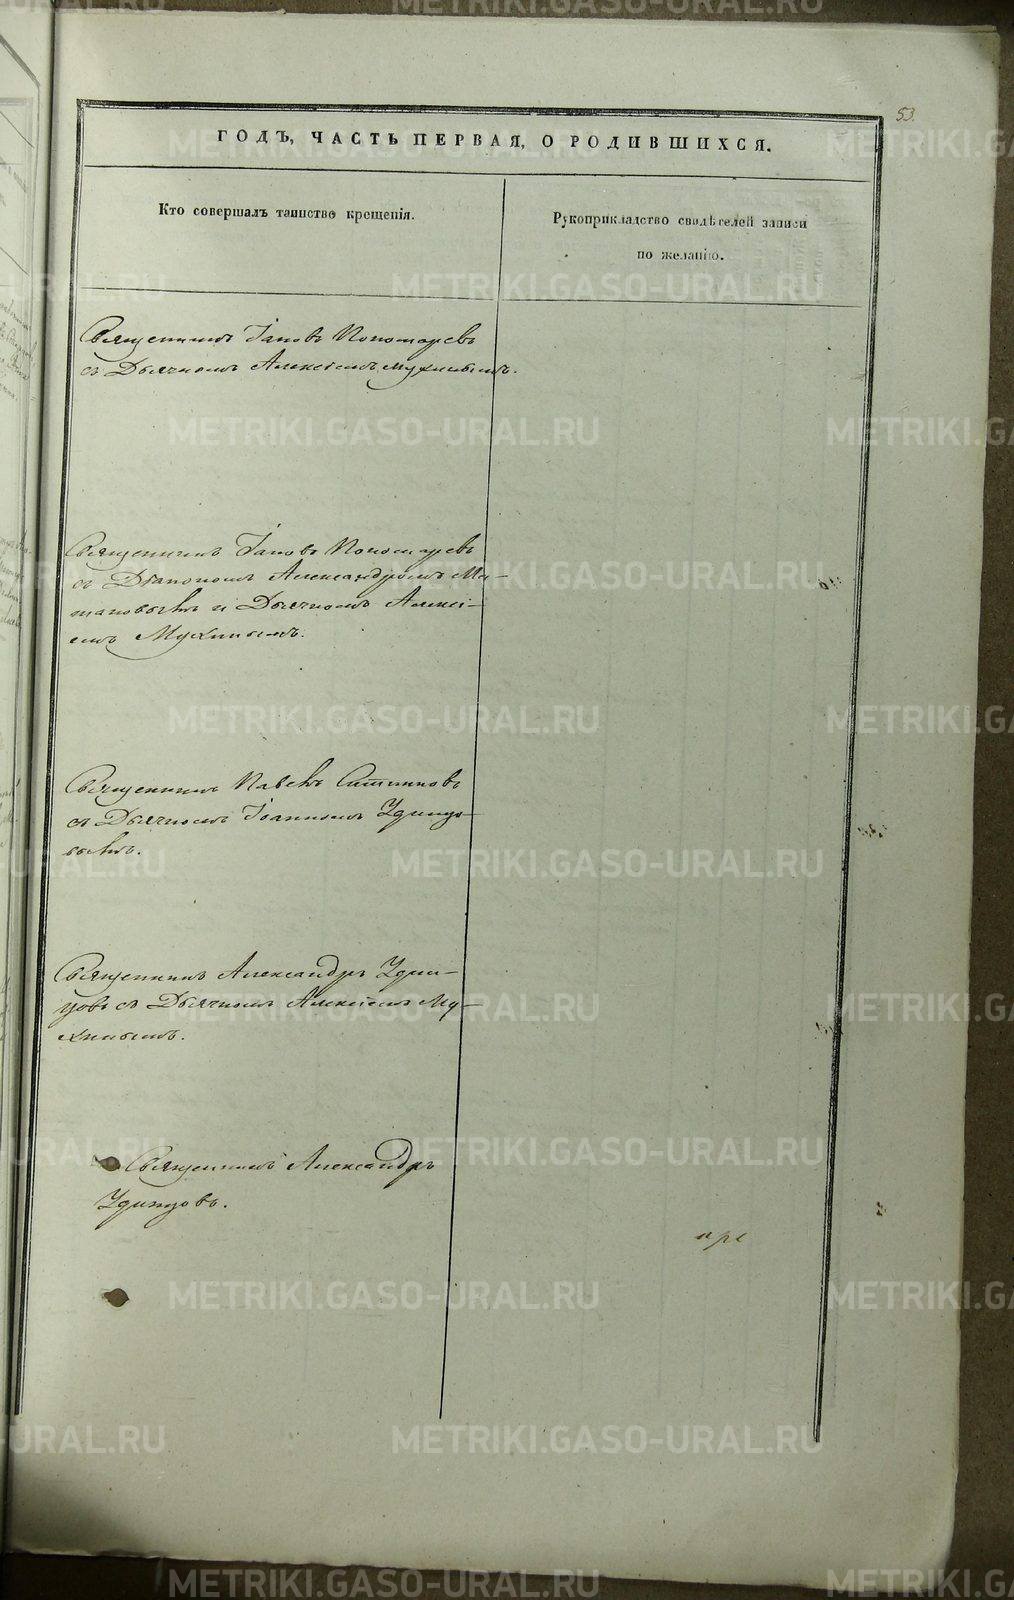 53.
ГОДЪ, ЧАСТЬ ПЕРВАЯ, О РОДИВШИХСЯ.
Кто совершалъ таинство крещенія.
Рукоприкладство свидѣтелей записи
по желанію.
Священникъ Іаковъ Пономаревъ
съ Дьячкомъ Алексіемъ Мухинымъ.
Священникъ Іаковъ Пономаревъ
съ Діакономъ Александромъ Ма-
и Дьячкомъ Алексі-
емъ Мухинымъ.
Священникъ Павелъ
съ Дьячкомъ Іоанномъ Удинцо-
вымъ.
Священникъ Александръ Удин-
цовъ съ Дьячкомъ Алексіемъ Му-
хинымъ.
Священникъ Александръ
Удинцовъ.
METRIKI.GASO-URAL.RU